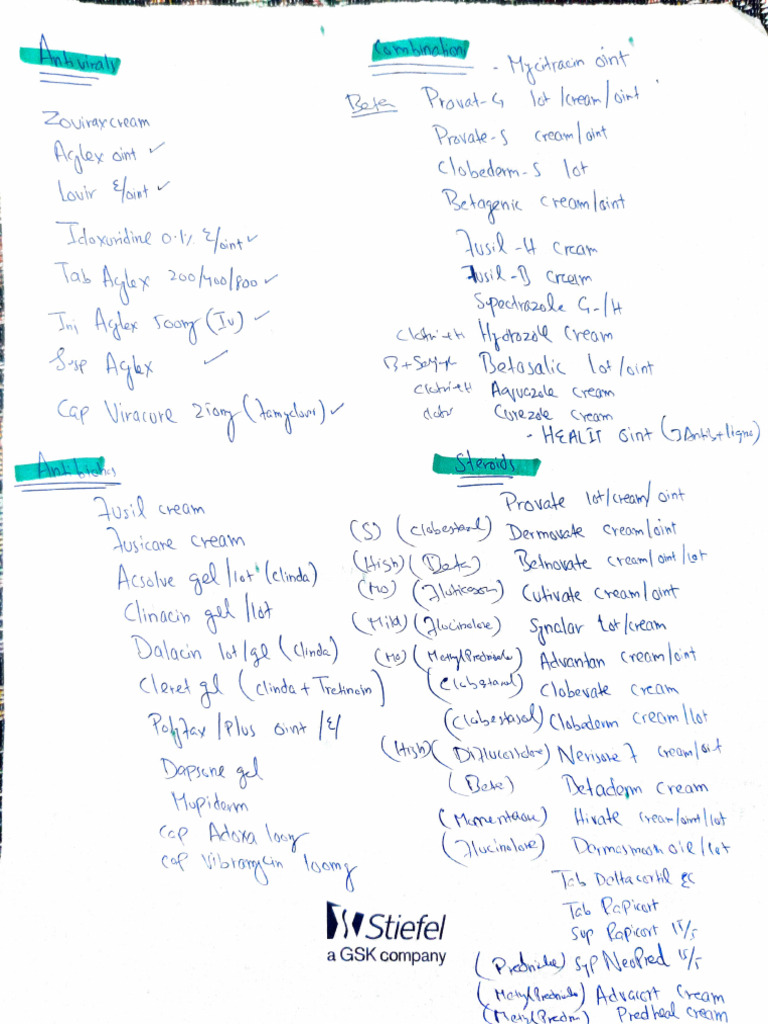 Antivirals
Zovirax cream
Aglex oint ✓
Lovir ε/oint ✓
Idoxuridine 0.1% ε/oint ✓
Tab Aglex 200/400/800 ✓
Inj Aglex 500mg (IV) ✓
Susp Aglex ✓
Cap Viracure 250mg (Famyclovir) ✓
Antibiotics
Fusil cream
Fusicare cream
Acsolve gel/lot (Clinda)
Clinacin gel/lot
Dalacin lot/gel (Clinda)
Cleret gel (Clinda + Tretinoin)
Polyfax/Plus oint/ε/
Dapsone gel
Mupiderm
Cap Adoxa 100mg
Cap Vibramycin 100mg
Combination
- Mycitracin oint
Beta Provat-G lot/cream/oint
Provate-S cream/oint
Clobederm-S lot
Betagenic cream/oint
Fusil-H cream
Fusil-B cream
Spectrazole G-/H
Clotri+H Hydrozole cream
B+Salicyl Betasalic lot/oint
Clotri+H Aquazole cream
Curezole cream
- HEALIT oint (Antib+ligno)
Steroids
Provate lot/cream/oint
(S) (Clobestasol) Dermovate cream/oint
(High) (Beta) Betnovate cream/oint/lot
(Mo) (Fluticason) Cutivate cream/oint
(Mild) (Flucinolone) Synalar lot/cream
(Mo) (MethylPrednisolo) Advantan cream/oint
(Clobetasol) Clobevate cream
(Clobestasol) Clobederm cream/lot
(High) (Diflucortolone) Nerisone F cream/oint
(Beta) Betaderm cream
(Momentason) Hivate cream/oint/lot
(Flucinolone) Dermasmooth oil/lot
Tab Deltacortil EC
Tab Rapicort
Sup Rapicort 15/5
(Prednisolo) Syp NeoPred 15/5
(MethylPrednisolo) Advacort cream
(MethylPredni) Predheal cream
Stiefel
a GSK company